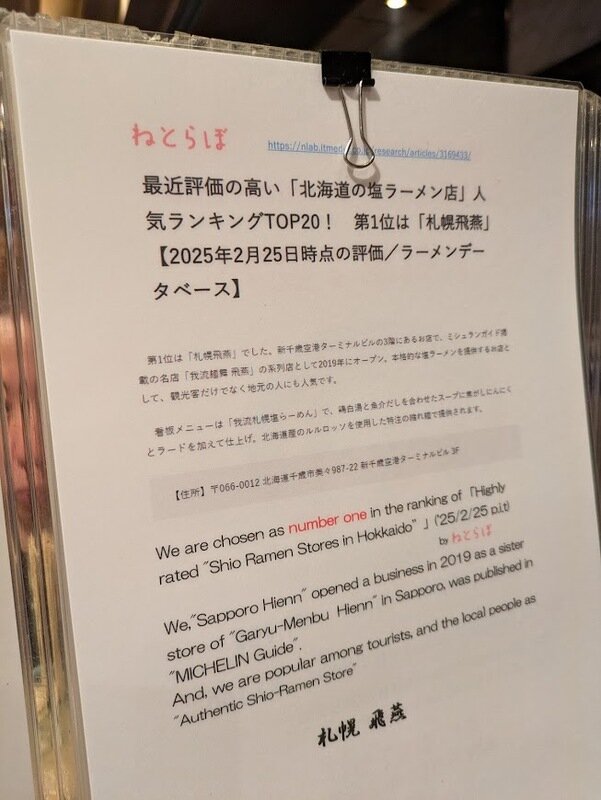 ねとらぼ
https://nlab.itmed co.jp/research/articles/3169433/
最近評価の高い「北海道の塩ラーメン店」人
気ランキングTOP20！　第1位は「札幌飛燕」
【2025年2月25日時点の評価／ラーメンデー
タベース】
第1位は「札幌飛燕」でした。新千歳空港ターミナルビルの3階にあるお店で、ミシュランガイド掲
載の名店「我流麺舞 飛燕」の系列店として2019年にオープン。本格的な塩ラーメンを提供するお店と
して、観光客だけでなく地元の人にも人気です。
看板メニューは「我流札幌塩らーめん」で、鶏白湯と魚介だしを合わせたスープに焦がしにんにく
とラードを加えて仕上げ。北海道産のルルロッソを使用した特注の縮れ麺で提供されます。
【住所】〒066-0012 北海道千歳市美々987-22 新千歳空港ターミナルビル 3F
We are chosen as number one in the ranking of「Highly
rated "Shio Ramen Stores in Hokkaido" 」('25/2/25 p.i.t)
by ねとらぼ
We,"Sapporo Hienn" opened a business in 2019 as a sister
store of "Garyu-Menbu Hienn" in Sapporo, was published in
"MICHELIN Guide".
And, we are popular among tourists, and the local people as
"Authentic Shio-Ramen Store"
札幌 飛燕